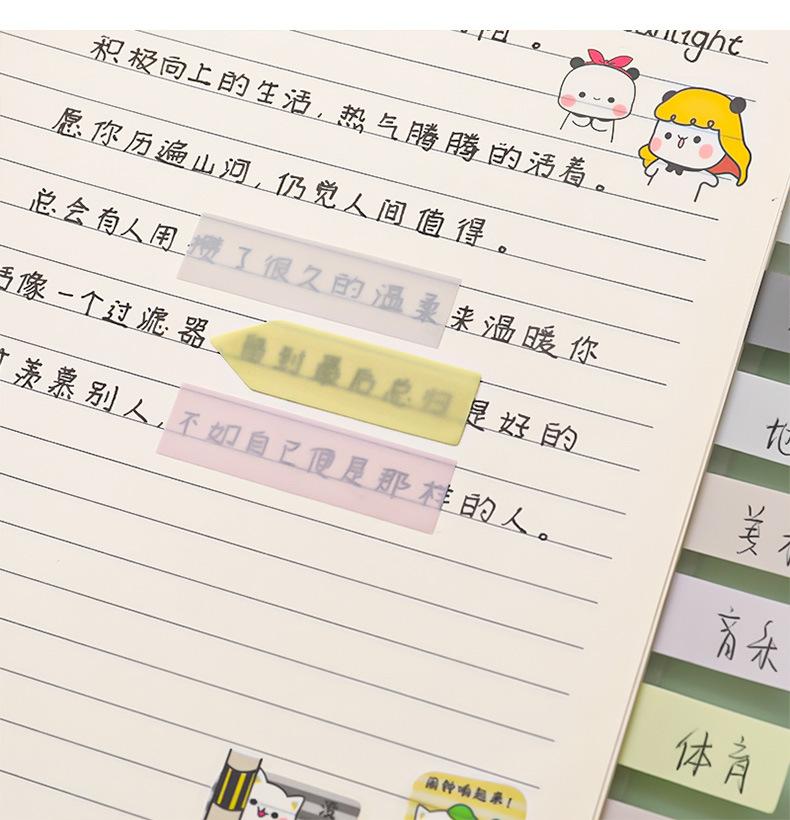 积极向上的生活，热气腾腾的活着。
愿你历遍山河，仍觉人间值得。
总会有人用攒了很久的温柔来温暖你
像一个过滤器留到最后总归是好的
羡慕别人，不如自己便是那样的人。
地
美
音乐
体育
没
闹钟响起来！